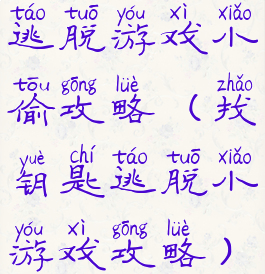 táo tuō yóu xì xiǎo
逃脱游戏小
tōu gōng lüè zhǎo
偷攻略（找
yuè chí táo tuō xiǎo
钥匙逃脱小
yóu xì gōng lüè
游戏攻略）